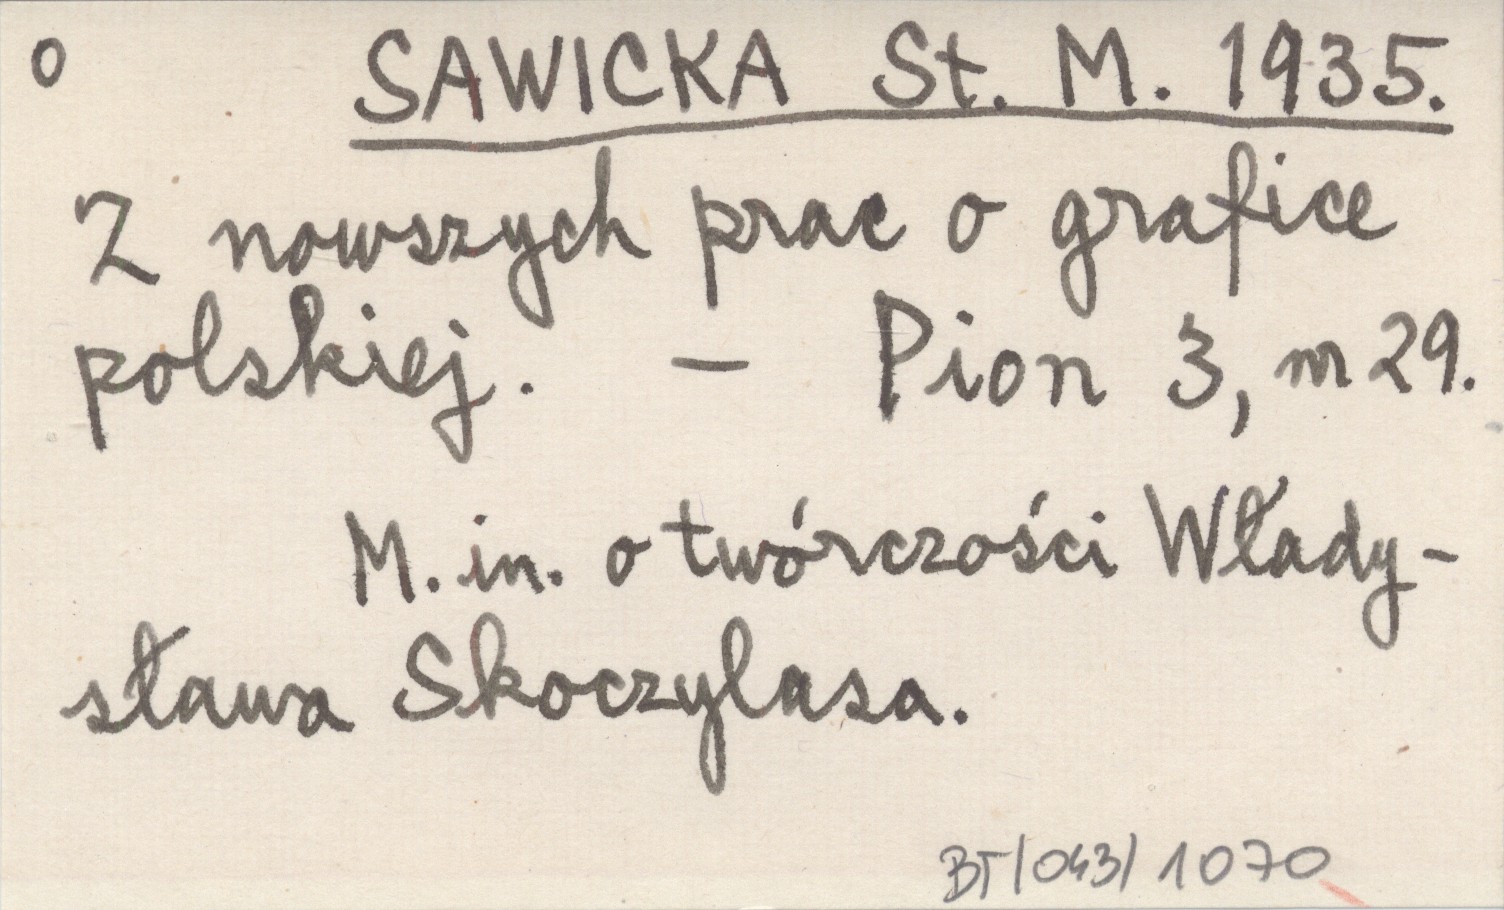 o SAWICKA St. M. 1935.
Z nowszych prac o grafice
polskiej. – Pion 3, nr 29.
M. in. o twórczości Włady-
sława Skoczylasa.
BT/043/1070